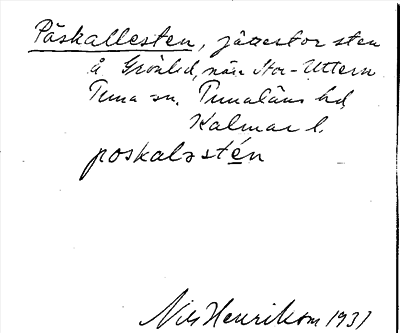 Påskallesten, jättestor sten
å Grönlid, när Stor-Uttern
Tuna sn. Tunaläns hd
Kalmar l.
poskaləstén
Nils Henrikson 1937